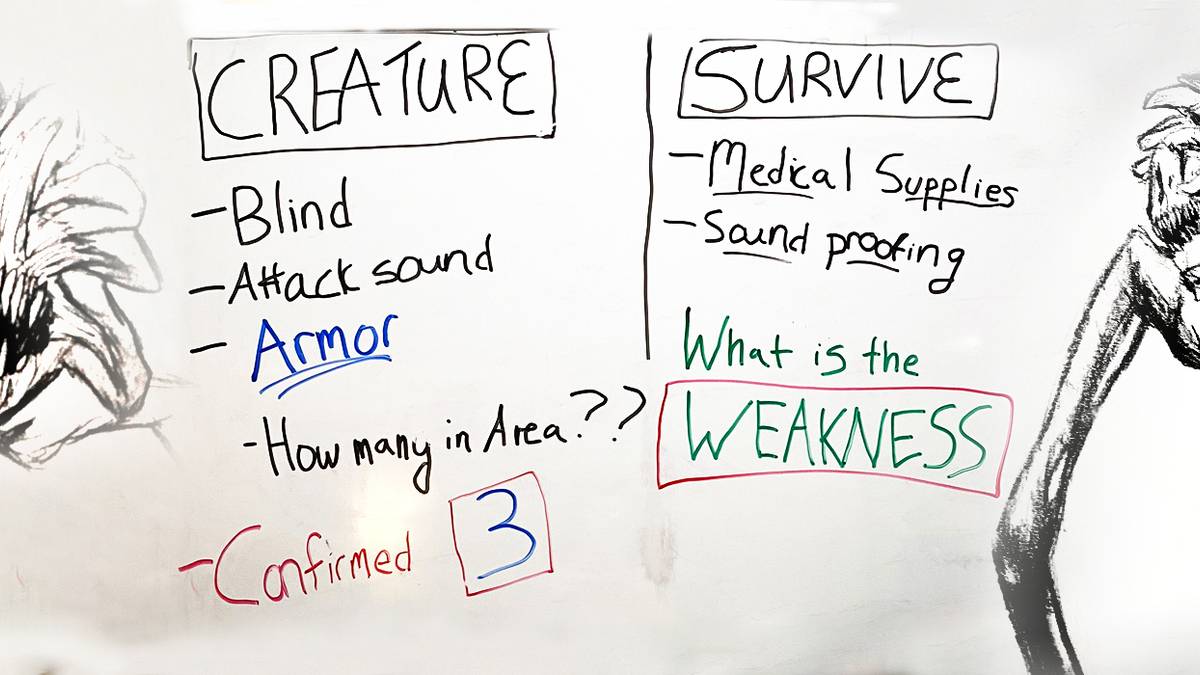 CREATURE
-Blind
-Attack sound
- Armor
-How many in Area??
-Confirmed 3
SURVIVE
-Medical Supplies
-Sound proofing
What is the
WEAKNESS